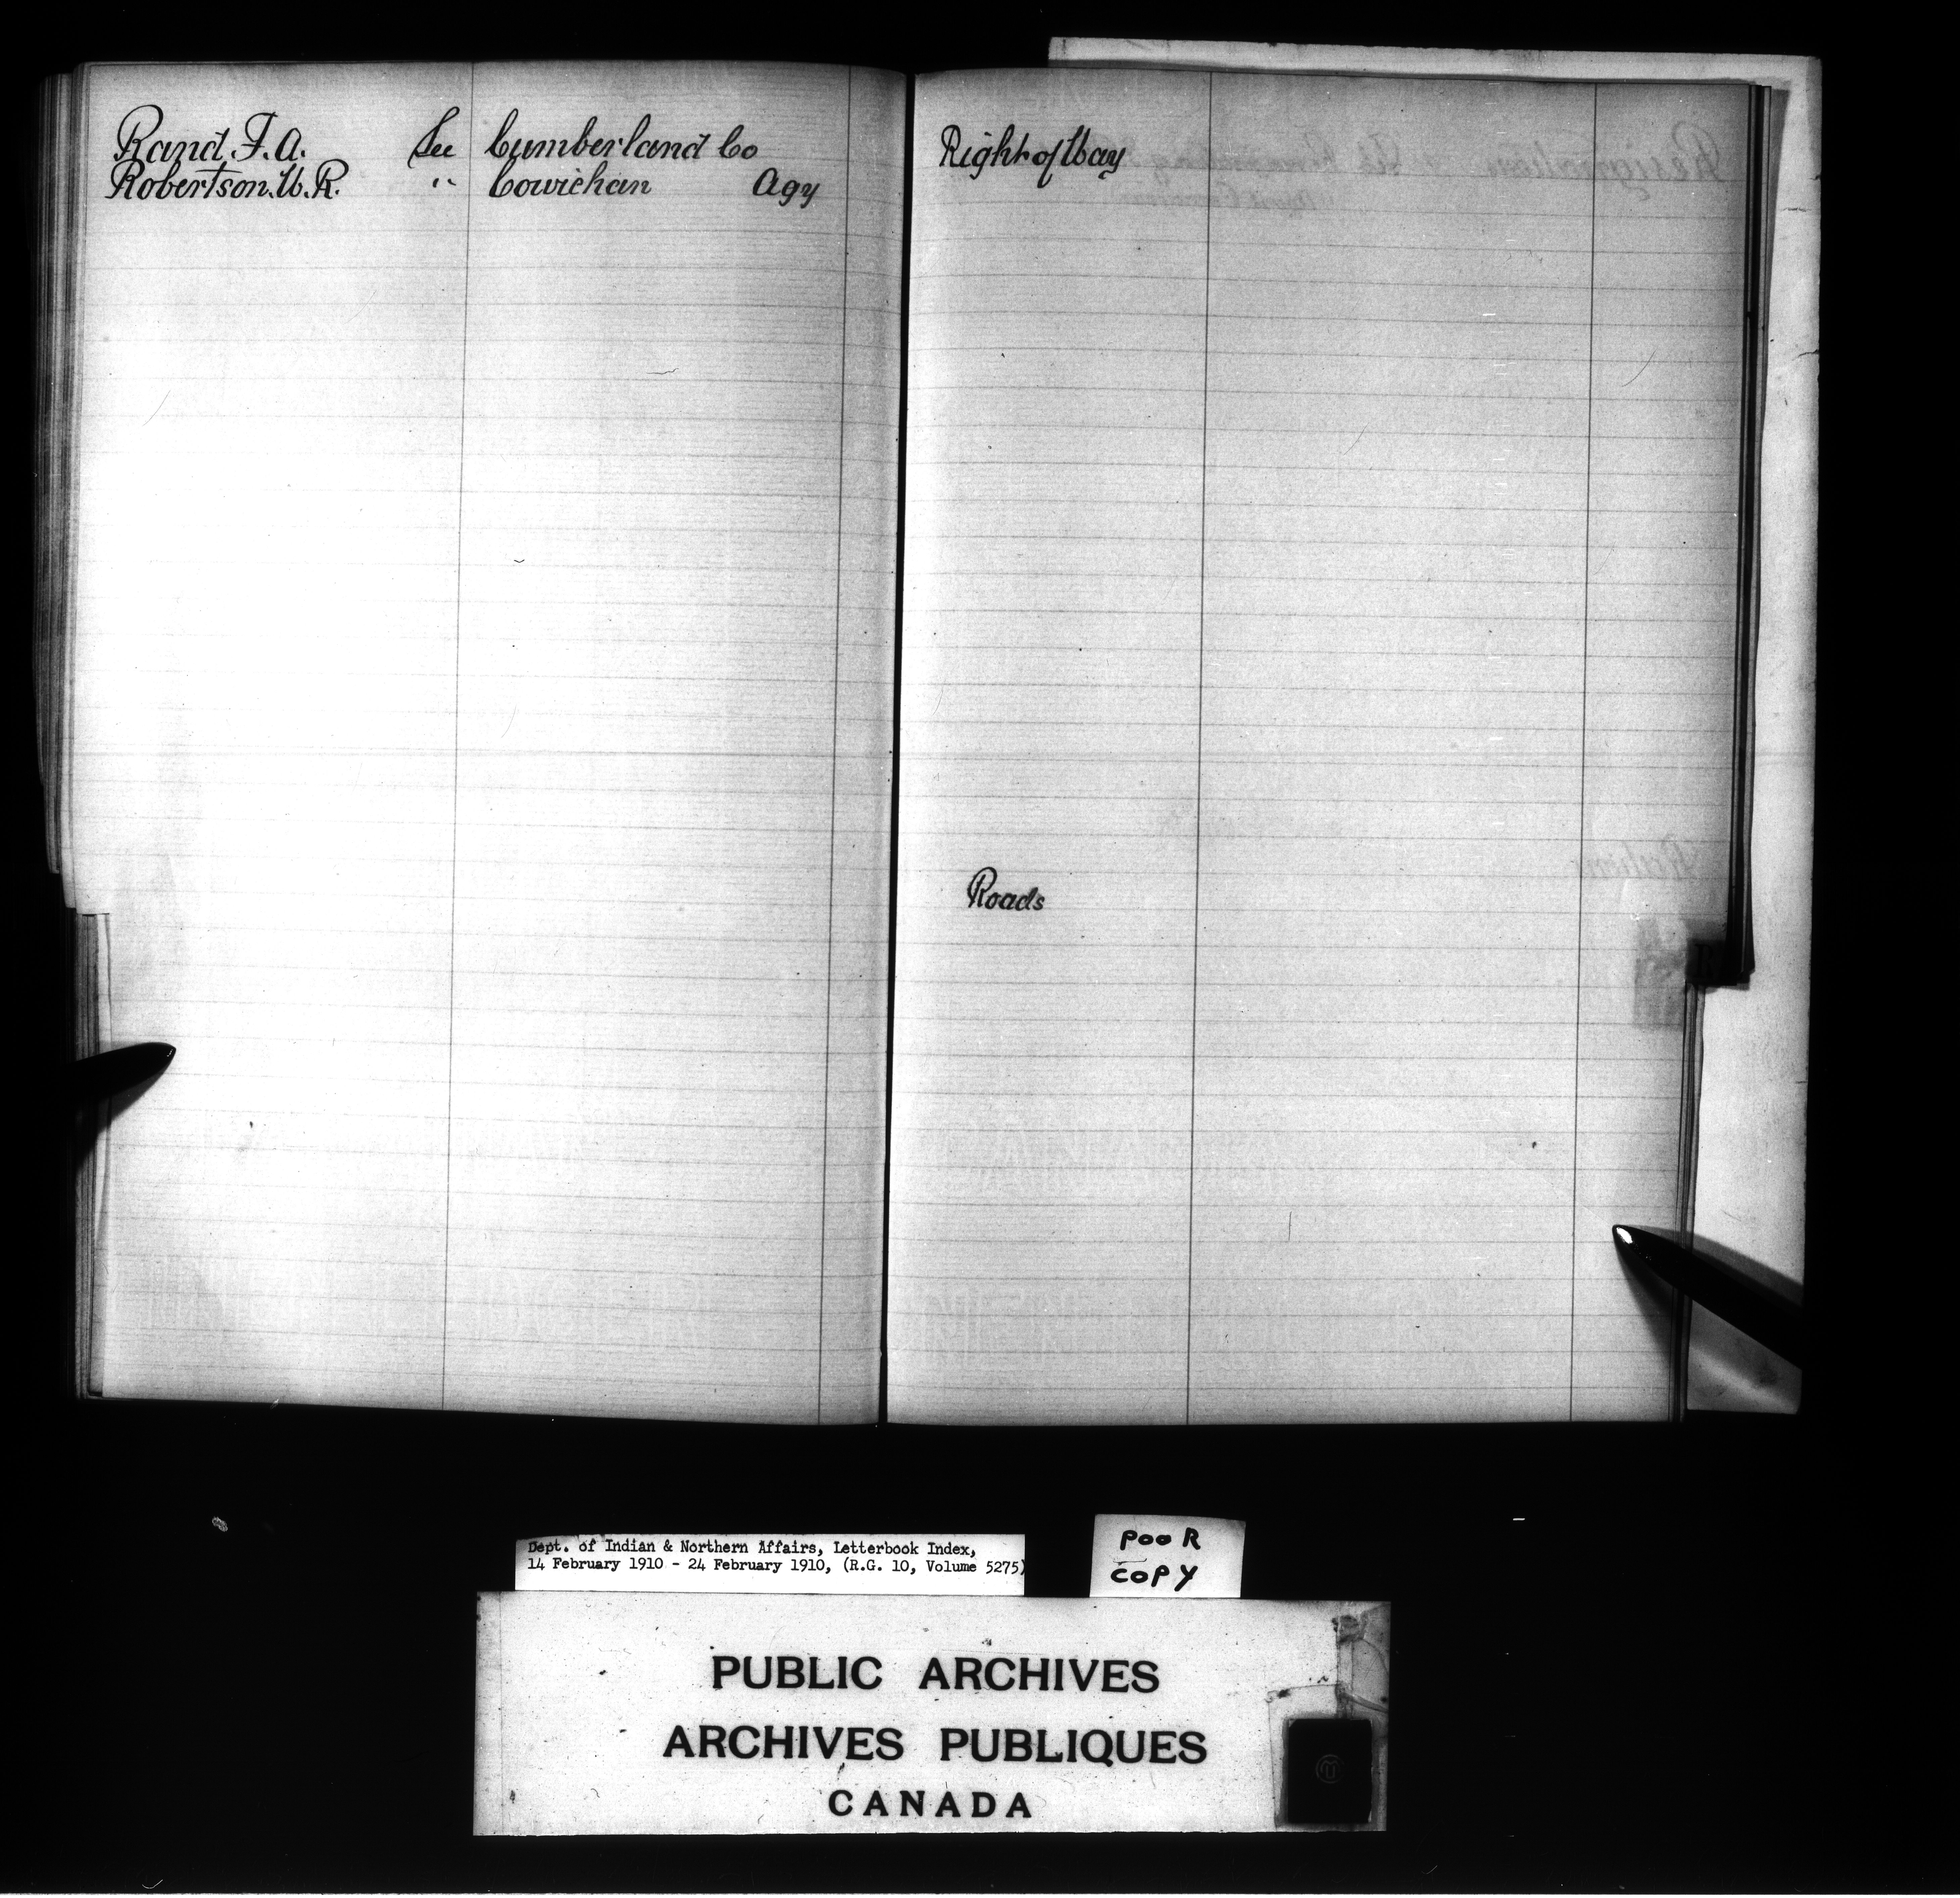 Rand, F. A. See Cumberland Co
Robertson, W. R. " Cowichan Agy
Right of Way
Roads
Dept. of Indian & Northern Affairs, Letterbook Index,
14 February 1910 - 24 February 1910, (R.G. 10, Volume 5275)
POOR
COPY
PUBLIC ARCHIVES
ARCHIVES PUBLIQUES
CANADA